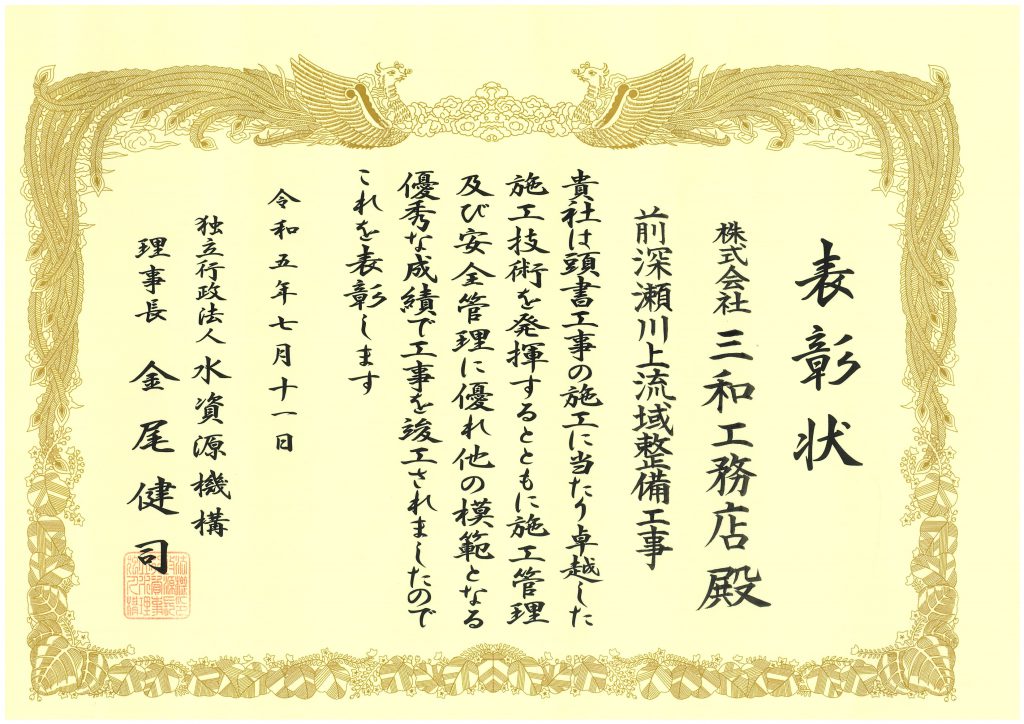 表彰状
株式会社 三和工務店殿
前深瀬川上流域整備工事
貴社は頭書工事の施工に当たり卓越した
施工技術を発揮するとともに施工管理
及び安全管理に優れ他の模範となる
優秀な成績で工事を竣工されましたので
これを表彰します
令和五年七月十一日
独立行政法人 水資源機構
理事長 金尾健司